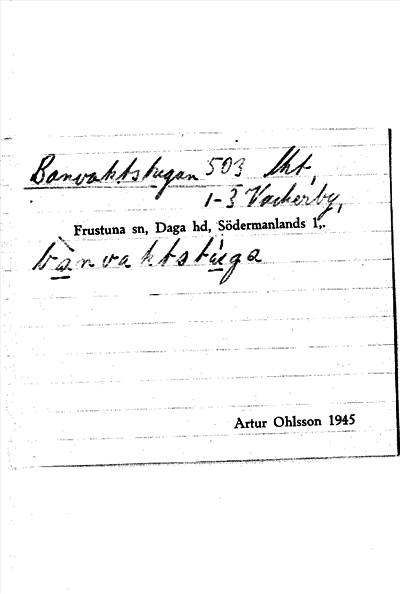 Banvaktstugan 503 lht,
1-3 Vackerby,
Frustuna sn, Daga hd, Södermanlands l.
bànvaktstúga
Artur Ohlsson 1945